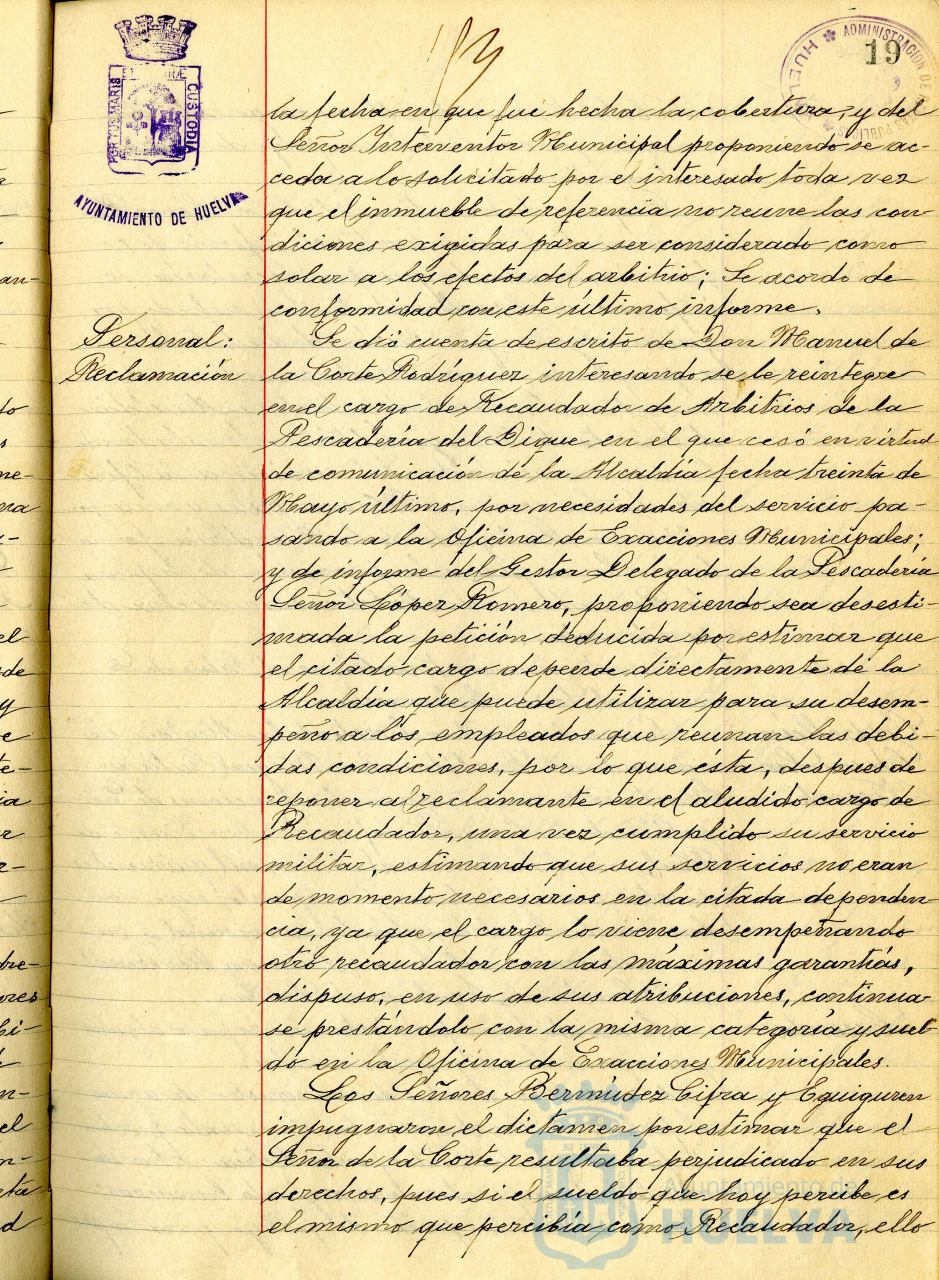 19
ADMINISTRACION DE
HUEL
PORTUS MARIS
CUSTODIA
AYUNTAMIENTO DE HUELVA
la fecha en que fué hecha la cobertura, y del
Señor Interventor Municipal proponiendo se ac-
ceda a lo solicitado por el interesado toda vez
que el inmueble de referencia no reune las con
diciones exigidas para ser considerado como
solar a los efectos del arbitrio; Se acordo de
conformidad con este último informe.
Personal:
Reclamación
Se dió cuenta de escrito de Don Manuel de
la Corte Rodríguez interesando se le reintegre
en el cargo de Recaudador de Arbitrios de la
Pescadería del Dique en el que cesó en virtud
de comunicación de la Alcaldía fecha treinta de
Mayo último, por necesidades del servicio pa-
sando a la Oficina de Exacciones Municipales;
y de informe del Gestor Delegado de la Pescadería
Señor López Romero, proponiendo sea desesti-
mada la petición deducida por estimar que
el citado cargo depende directamente de la
Alcaldía que puede utilizar para su desem-
peño a los empleados que reunan las debi-
das condiciones, por lo que ésta, despues de
reponer al reclamante en el aludido cargo de
Recaudador, una vez cumplido su servicio
militar, estimando que sus servicios no eran
de momento necesarios en la citada dependen
cia, ya que el cargo lo viene desempeñando
otro recaudador con las máximas garantías,
dispuso, en uso de sus atribuciones, continua-
se prestándolo con la misma categoría y suel-
do en la Oficina de Exacciones Municipales.
Los Señores Bermúdez Cifra y Eguiguren
impugnaron el dictamen por estimar que el
Señor de la Corte resultaba perjudicado en sus
derechos, pues si el sueldo que hoy percibe es
el mismo que percibía como Recaudador, ello
Ayuntamiento de
HUELVA